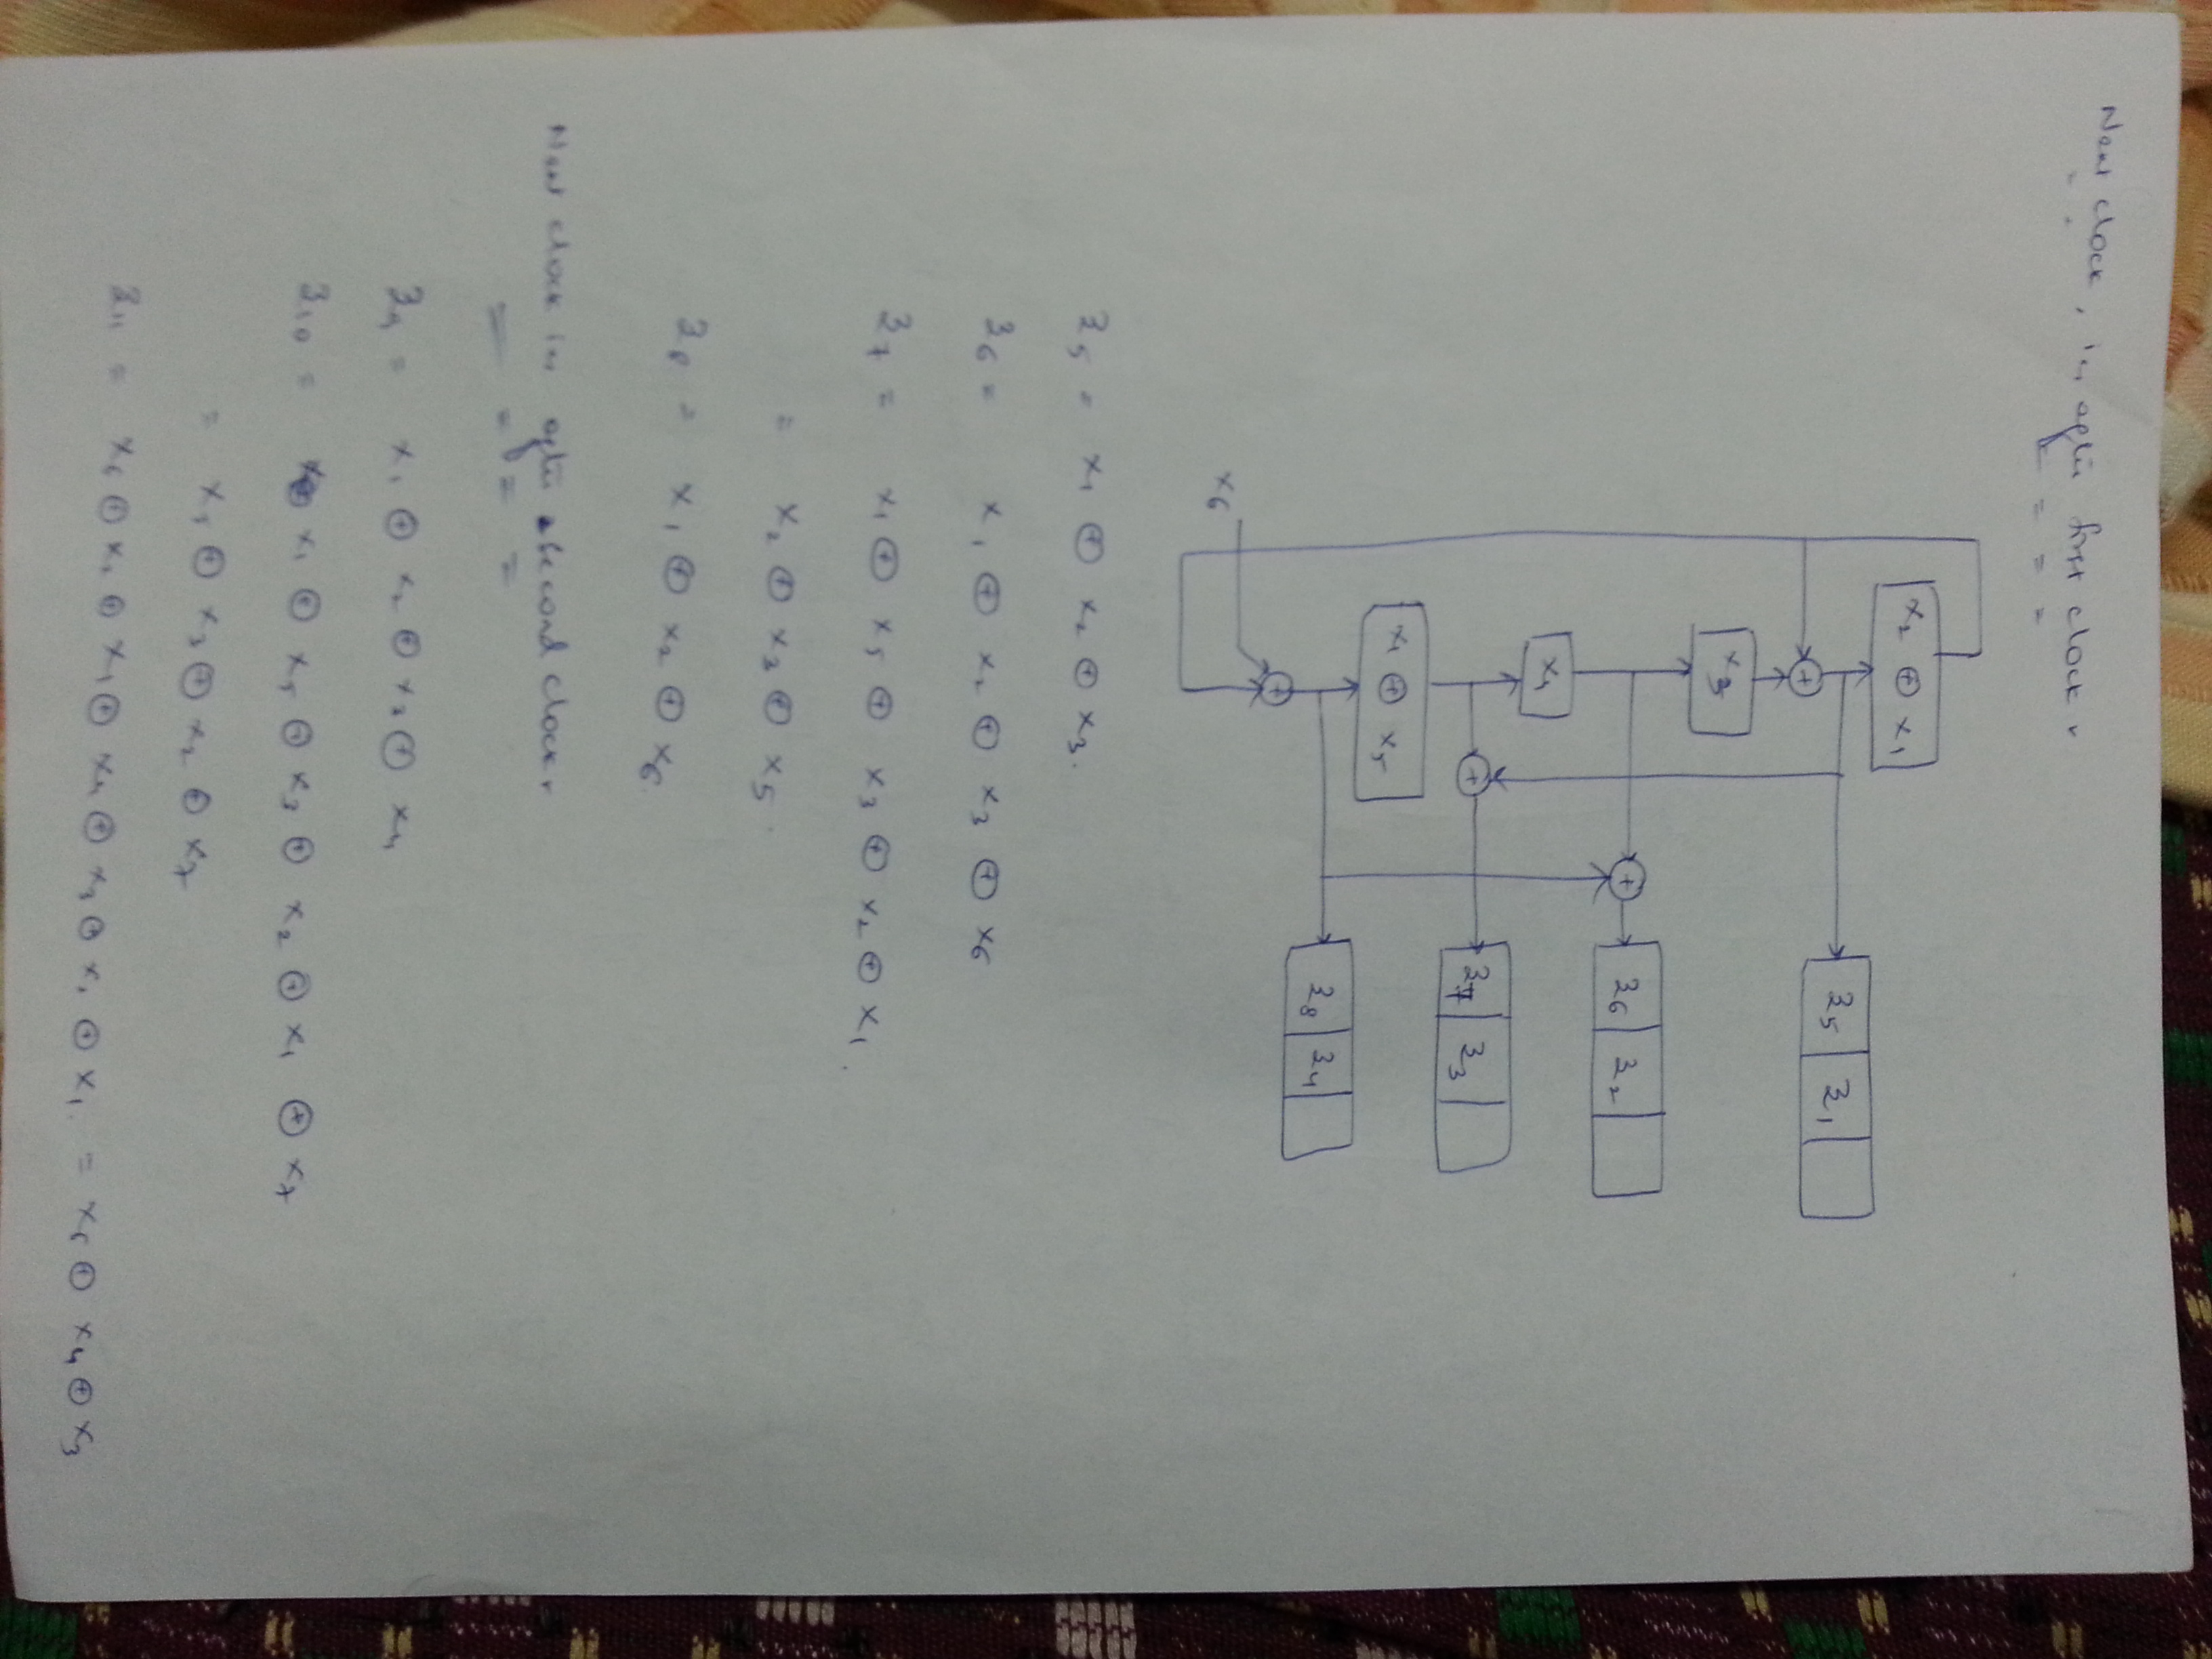 Next clock, ie, after first clock.
x₂ ⊕ x₁
z₅ z₁
x₃
z₆ z₂
x₄
z₇ z₃
x₁ ⊕ x₅
z₈ z₄
x₆
z₅ = x₁ ⊕ x₂ ⊕ x₃.
z₆ = x₁ ⊕ x₂ ⊕ x₃ ⊕ x₆
z₇ = x₁ ⊕ x₅ ⊕ x₃ ⊕ x₂ ⊕ x₁.
= x₂ ⊕ x₃ ⊕ x₅.
z₈ = x₁ ⊕ x₂ ⊕ x₆.
Next clock ie, after second clock.
z₉ = x₁ ⊕ x₂ ⊕ x₃ ⊕ x₄
z₁₀ = x₁ ⊕ x₅ ⊕ x₃ ⊕ x₂ ⊕ x₁ ⊕ x₇
= x₅ ⊕ x₃ ⊕ x₂ ⊕ x₇
z₁₁ = x₆ ⊕ x₂ ⊕ x₁ ⊕ x₄ ⊕ x₃ ⊕ x₂ ⊕ x₁. = x₆ ⊕ x₄ ⊕ x₃